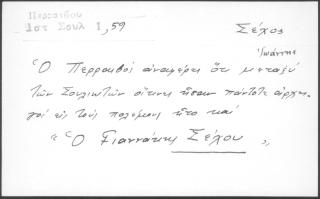 Περραιβού
Ιστ Σουλ 1,59
Σέχος
Ἰωάννης
Ὁ Περραιβός ἀναφέρει ὅτι μεταξύ
τῶν Σουλιωτῶν οἵτινες ἦσαν πάντοτε ἀρχη-
γοί εἰς τούς πολέμους ἦτο καί
"Ὁ Γιαννάκης Σέχου"